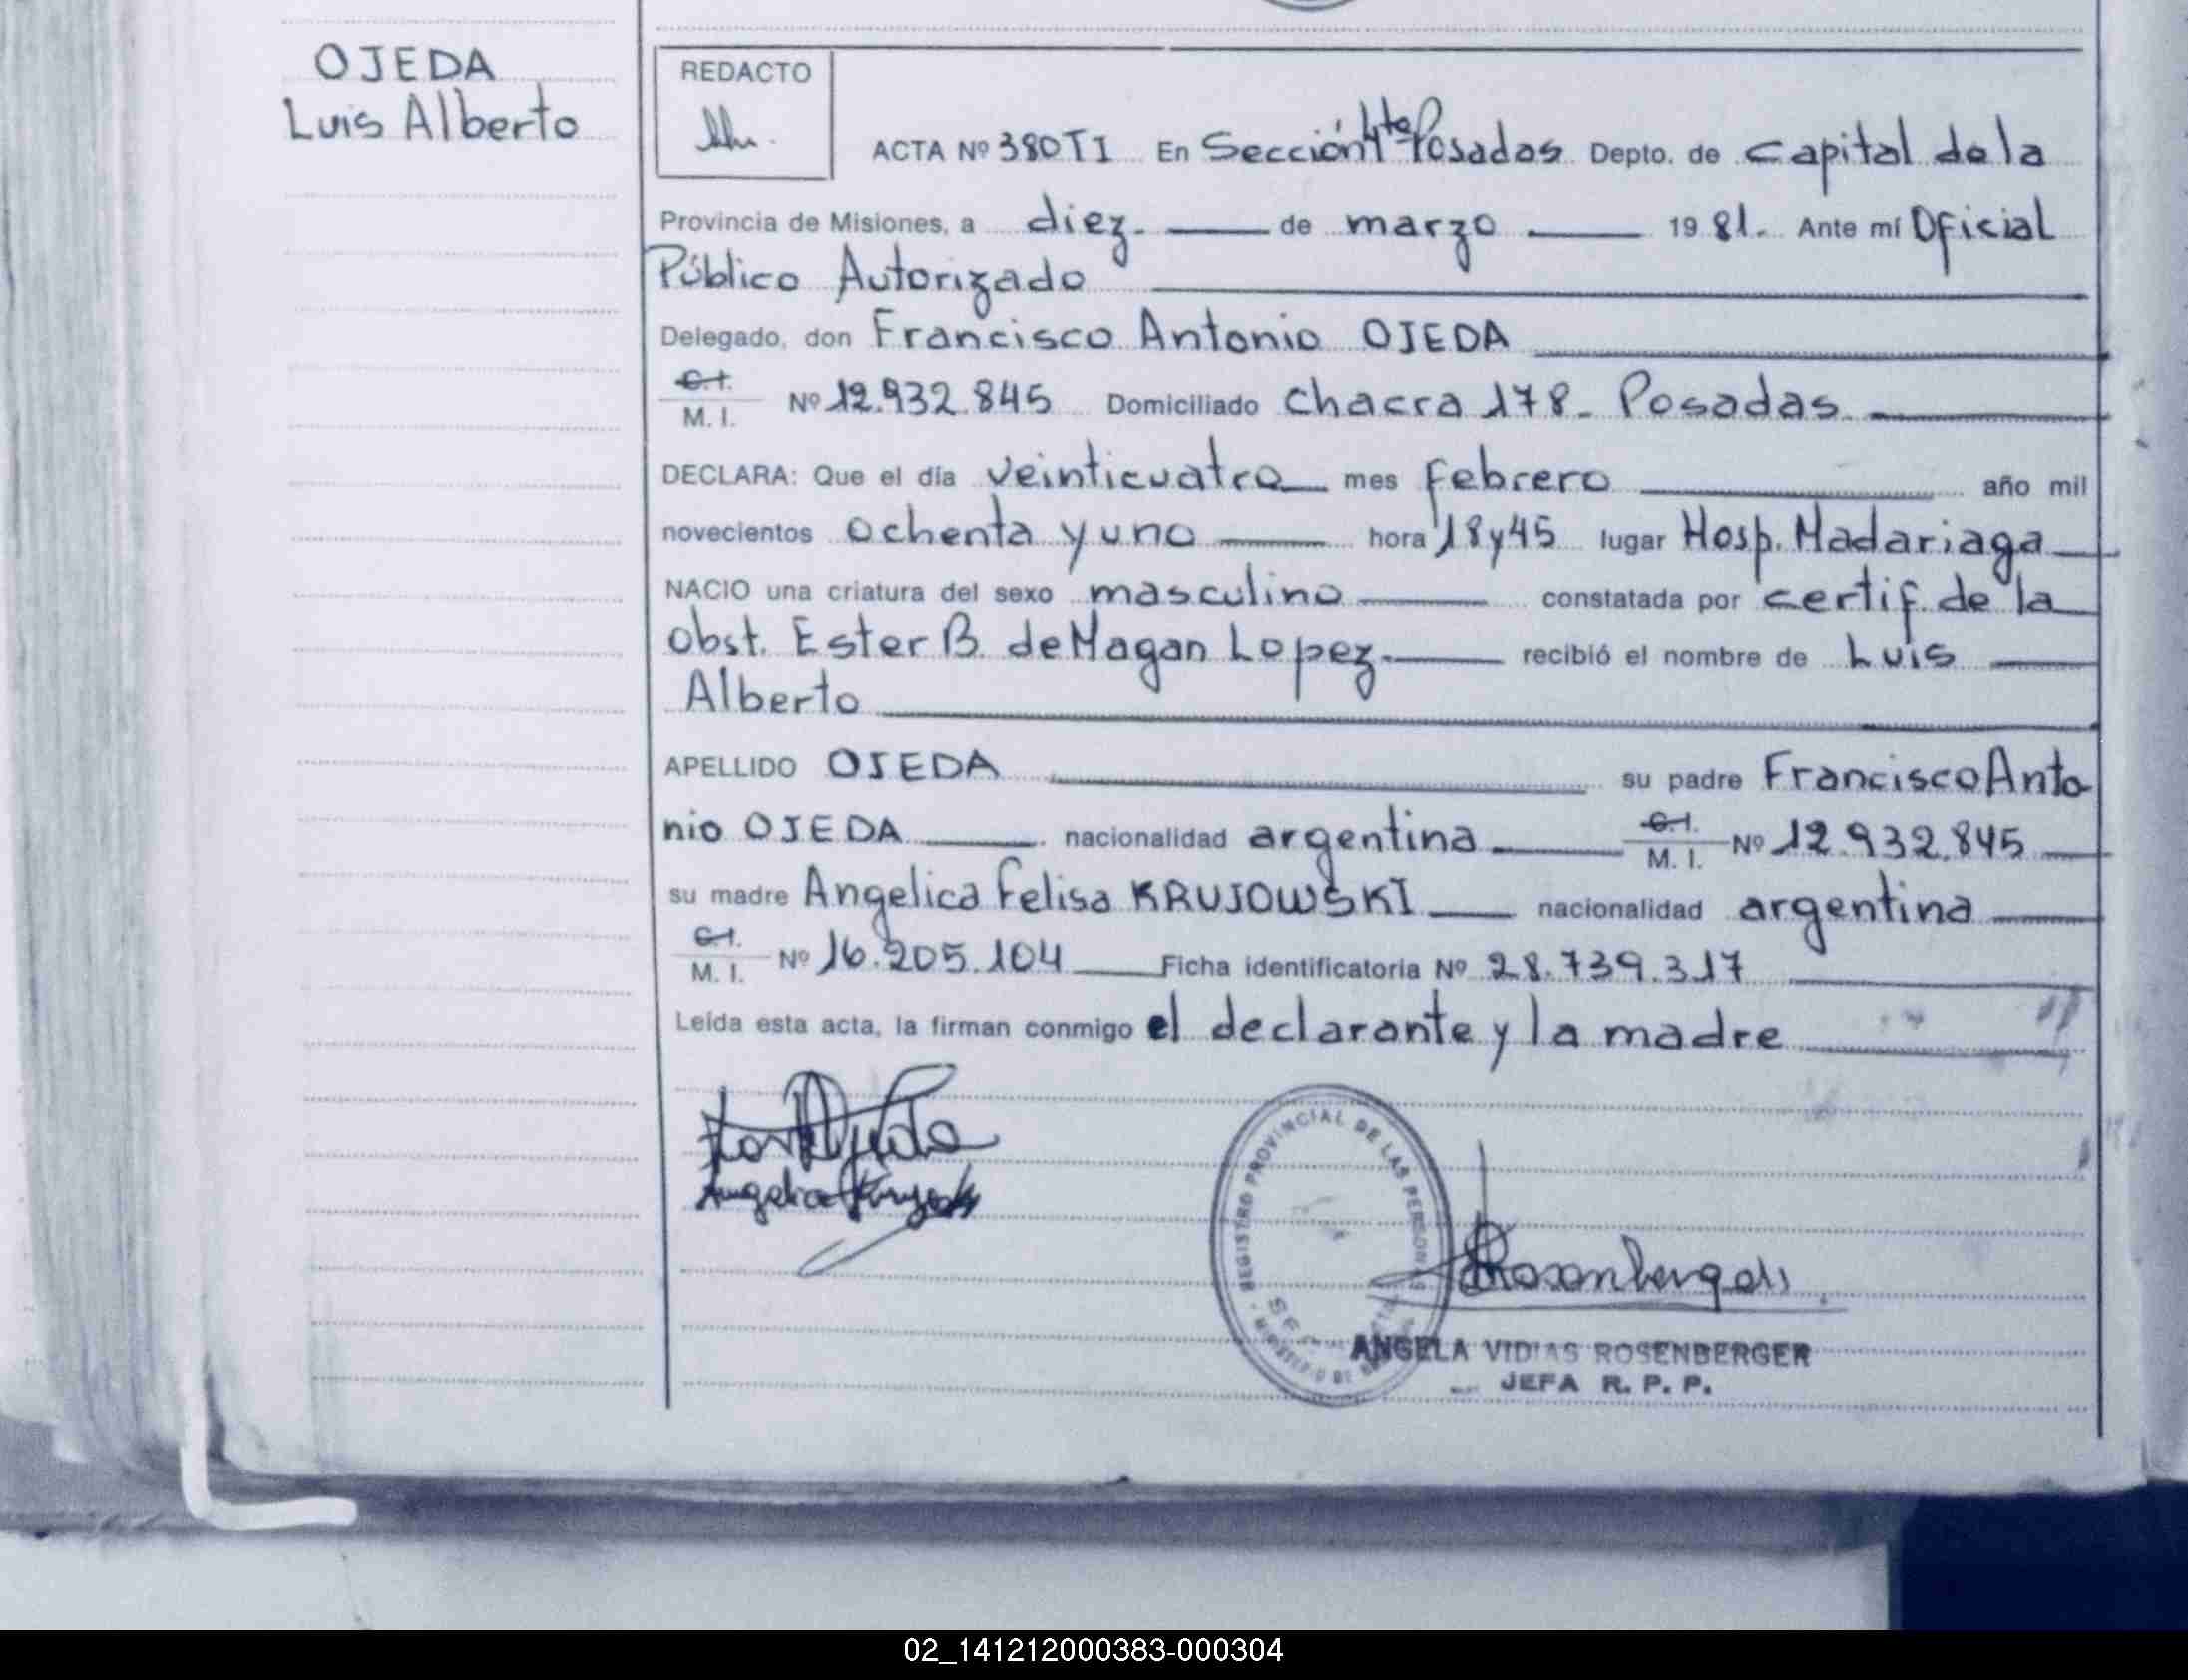 OJEDA
Luis Alberto
REDACTO
ACTA Nº 380 TI En Sección 4ta Posadas Depto. de Capital de la
Provincia de Misiones, a diez. de marzo 1981. Ante mí Oficial
Público Autorizado
Delegado, don Francisco Antonio OJEDA
C.I.
M. I. Nº 12.932.845 Domiciliado Chacra 178- Posadas.
DECLARA: Que el día veinticuatro mes febrero año mil
novecientos ochenta y uno hora 18y45 lugar Hosp. Madariaga
NACIO una criatura del sexo masculino constatada por certif. de la
obst. Ester B. de Magan Lopez. recibió el nombre de Luis
Alberto
APELLIDO OJEDA su padre Francisco Anto
nio OJEDA nacionalidad argentina C.I.
M. I. Nº 12.932.845
su madre Angelica Felisa KRUJOWSKI nacionalidad argentina
C.I.
M. I. Nº 16.205.104 Ficha identificatoria Nº 28.739.317
Leída esta acta, la firman conmigo el declarante y la madre
REGISTRO PROVINCIAL DE LAS PERSONAS
Rosenberger
ANGELA VIDIAS ROSENBERGER
JEFA R. P. P.
02_141212000383-000304